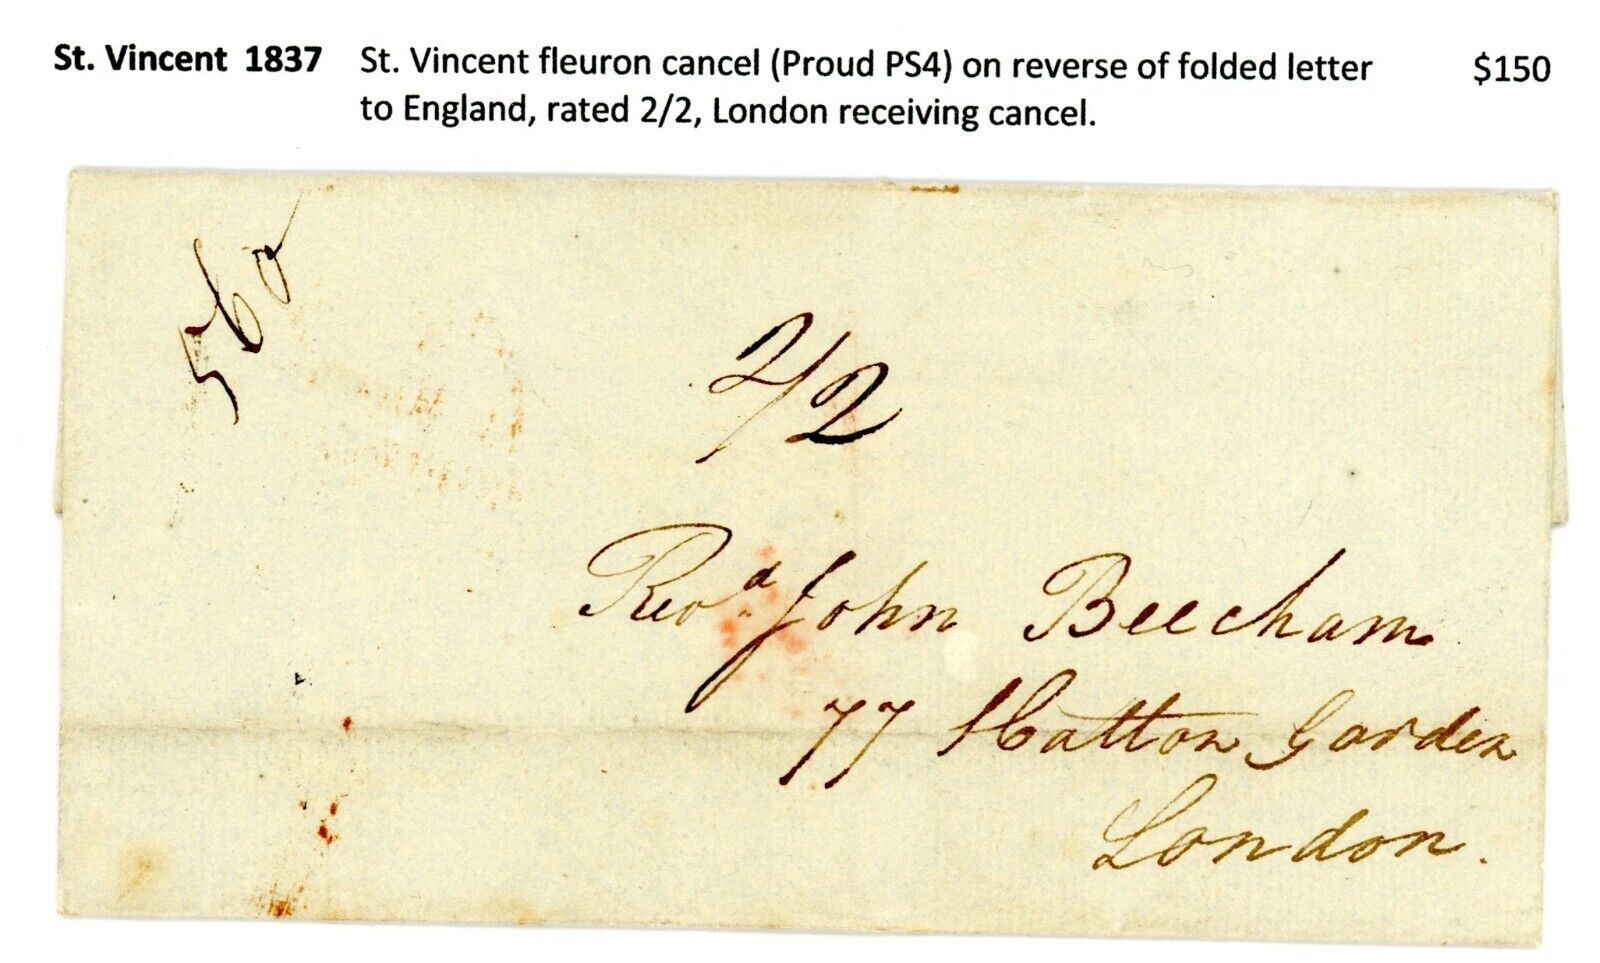 St. Vincent 1837 St. Vincent fleuron cancel (Proud PS4) on reverse of folded letter $150
to England, rated 2/2, London receiving cancel.
560
2/2
Revd. John Beecham
77 Hatton Garden
London.